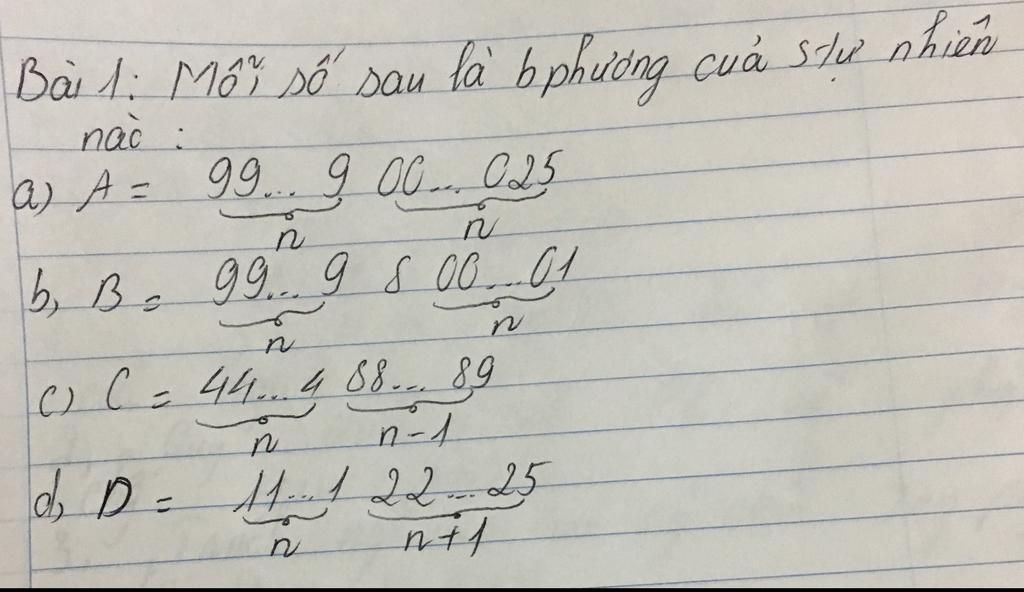 Bài 1: Mỗi số sau là b phương của s tự nhiên
nào :
a) A = 99... 9 00... 025
n n
b, B = 99... 9 8 00...01
n n
c) C = 44...4 88... 89
n n-1
d, D = 11...1 22...25
n n+1